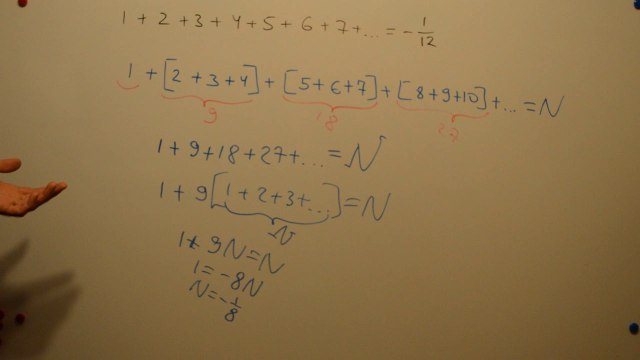 1 + 2 + 3 + 4 + 5 + 6 + 7 + ... = - 1/12
1 + [2 + 3 + 4] + [5 + 6 + 7] + [8 + 9 + 10] + ... = N
9 18 27
1 + 9 + 18 + 27 + ... = N
1 + 9 [1 + 2 + 3 + ...] = N
N
1 + 9N = N
1 = -8N
N = - 1/8